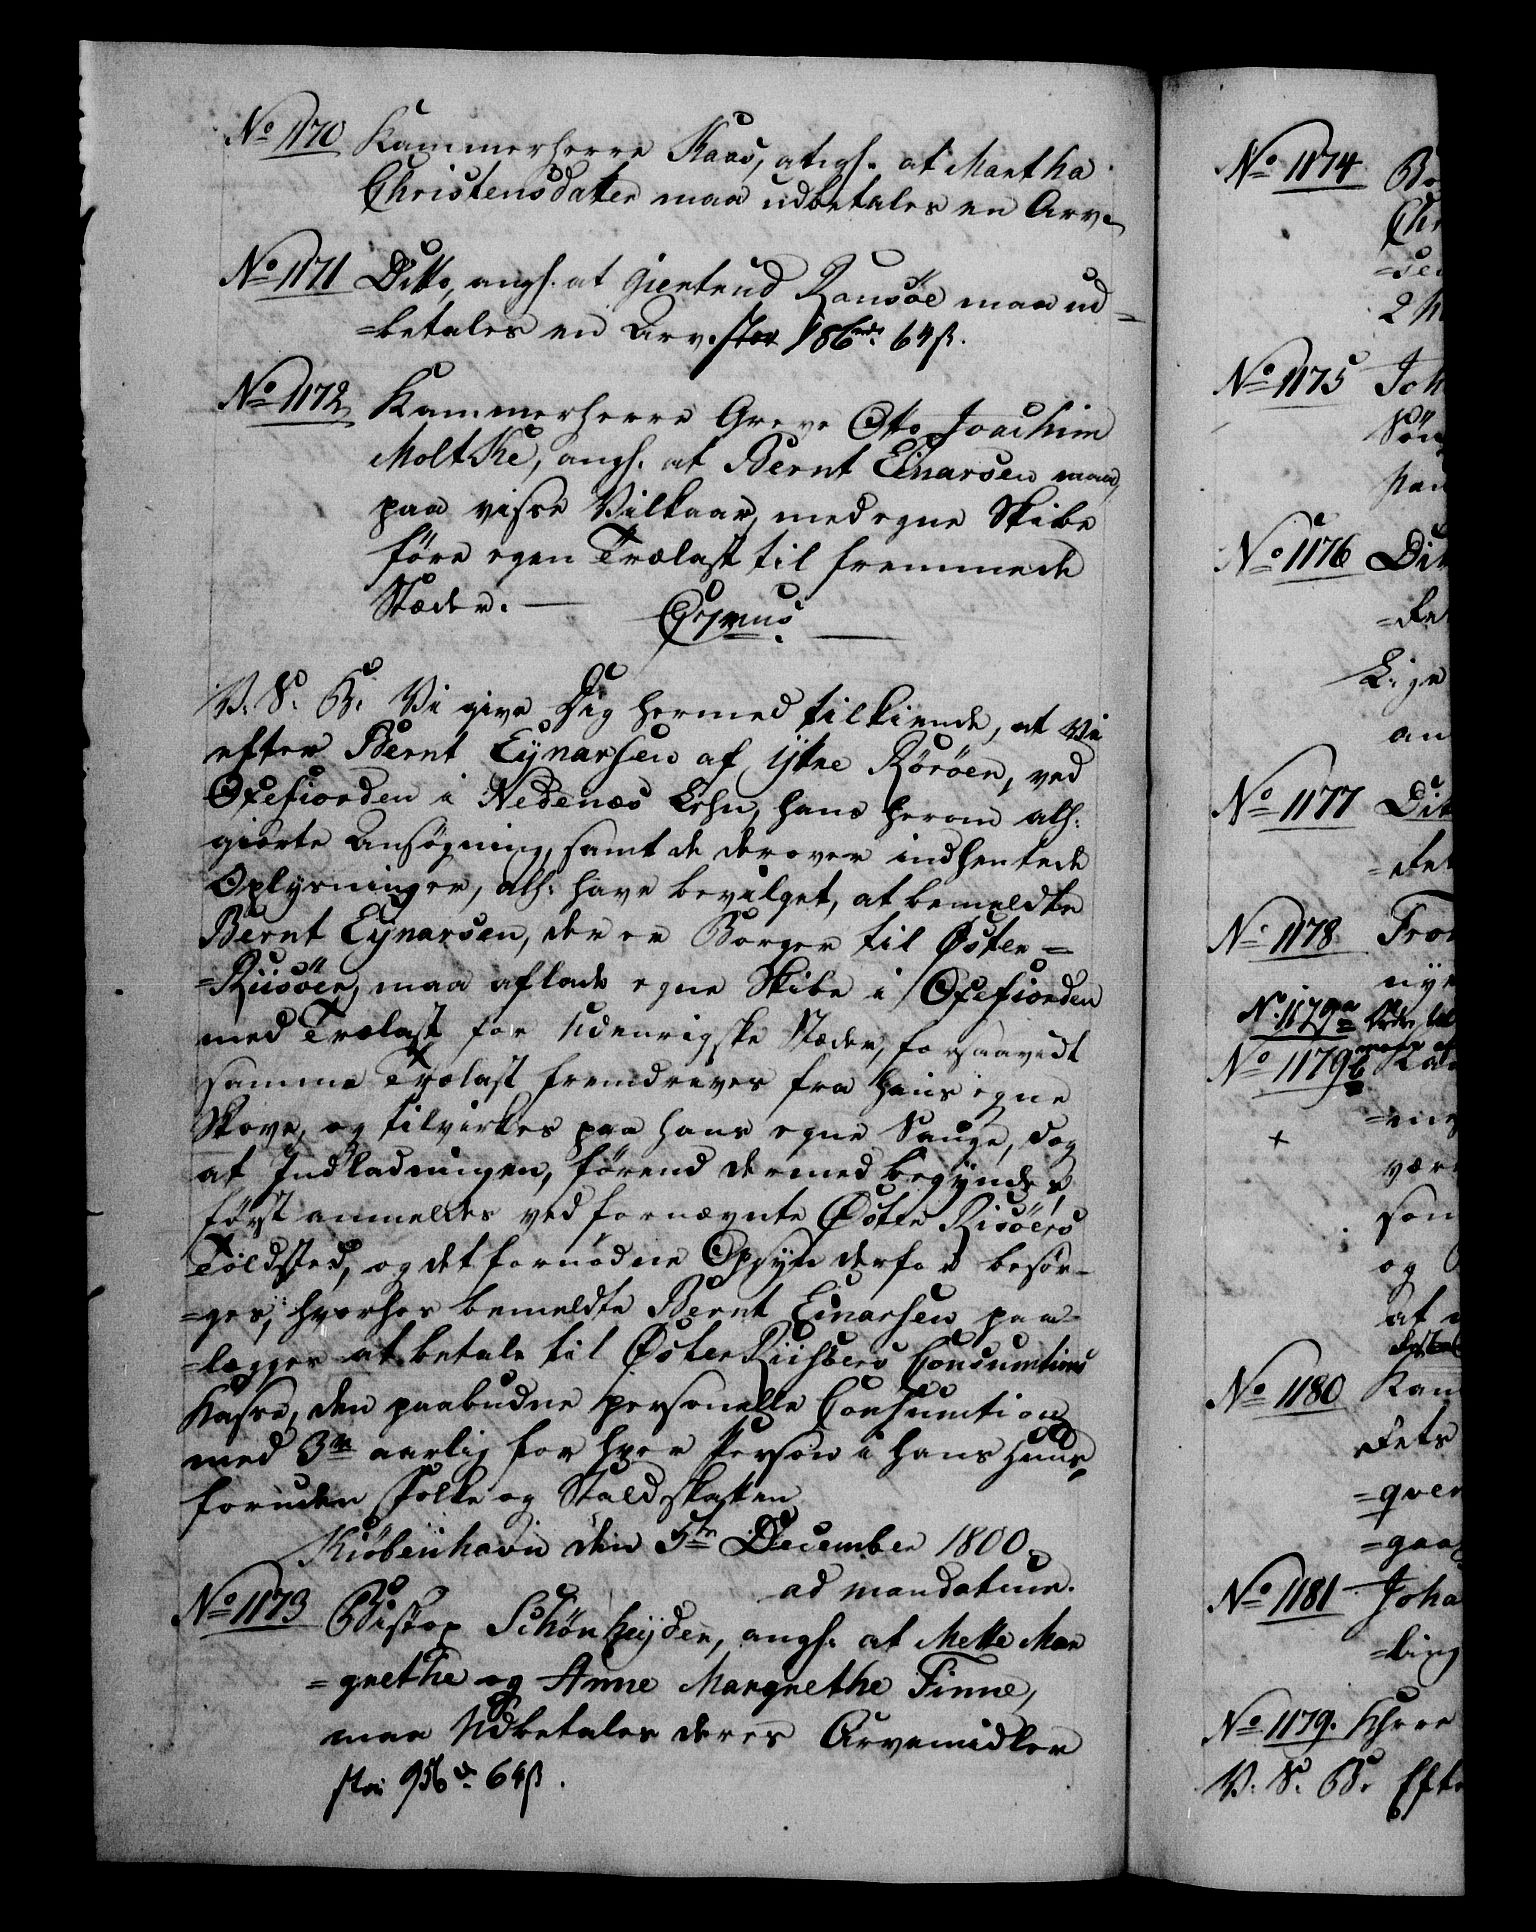 No 1170 Kammerherre Kaas, angh. at Martha
Christensdatter maa udbetales en Arv.
No 1171 Ditto, angh. at Giertrud Ransøe maa ud=
=betales en Arv, stor 186 rdr. 64 ß.
No 1172 Kammerherre Greve Otto Joachim
Moltke, angh. at Bernt Einarsen maa,
paa visse Vilkaar, med egne Skibe
føre egen Trælast til fremmede
Stæder. —
V. S. B. Vi give Dig hermed tilkiende, at Vi
efter Bernt Eynarsen af Ytre Röröen, ved
Oxefiorden i Nedenæs Lehn, hans herom alh:
giorte Ansøgning, samt de derover indhentede
Oplysninger, alh: have bevilget, at bemeldte
Bernt Eynarsen, der er Borger til Øster=
=Riisöer, maa aflade egne Skibe i Oxefiorden
med Trælast for Udenrigske Stæder, forsaavidt
samme Trælast fremdrives fra hans egne
Skove, og tilvirkes paa hans egne Sauge, dog
at Indladningen, förend dermed begyndes,
først anmeldes ved fornævnte Öster Risöers
Toldsted, og det fornødne Opsyn derfor besör=
=ges, hvorhos bemeldte Bernt Einarsen paa=
=lægges at betale til Øster Riisöers Consumtions
Kasse, den paabudne personelle Consumtion
med 3 rdr aarlig for hver Person i hans Huus,
foruden Folke og Staldskatten
Kiöbenhavn den 5te December 1800.
ad mandatum.
No 1173 Biskop Schönheyder, angh. at Mette Mar
=grethe og Anne Margrethe Finne,
maa Udbetales deres Arvemidler
stor 956 rd. 64 ß.
No 1174
2
No 1175 Joh
Sön
No 1176 Dit
Lige
an
No 1177 Dit
No 1178
nye
No. 1179a
No 1179b
vær
som
og
at
No 1180 Kam
dets
=qver
=gaa
No 1181 Joha
=ling
No 1179.
V. S. B. Efte